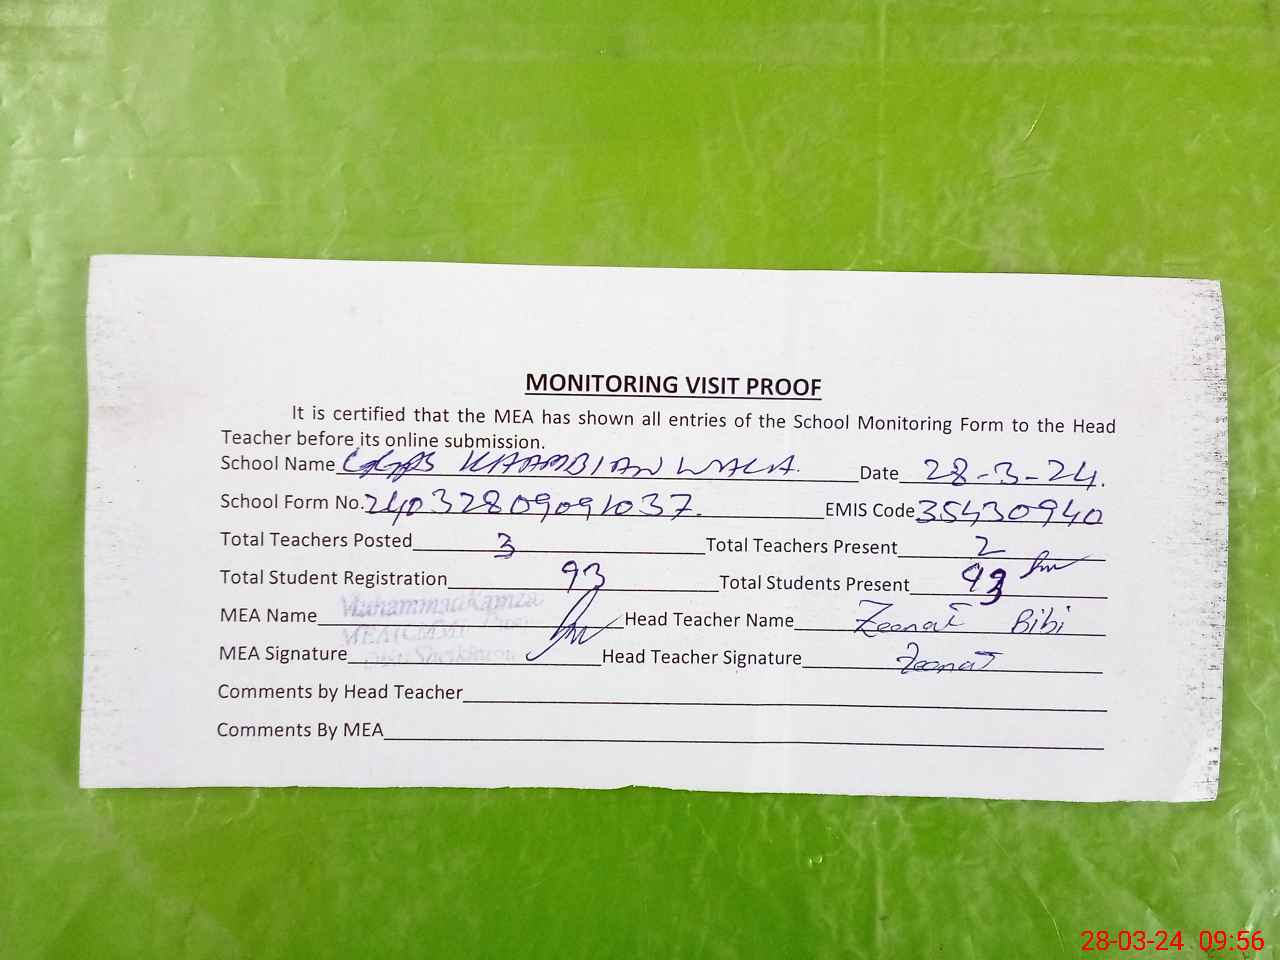 MONITORING VISIT PROOF
It is certified that the MEA has shown all entries of the School Monitoring Form to the Head
Teacher before its online submission.
School Name GGPS KHAMBIAN WALA. Date 28-3-24.
School Form No. 24032809091037. EMIS Code 35430940
Total Teachers Posted 3 Total Teachers Present 2
Total Student Registration 93 Total Students Present 93
MEA Name Muhammad Head Teacher Name Zeenat Bibi
MEA Signature Head Teacher Signature Zeenat
Comments by Head Teacher
Comments By MEA
28-03-24 09:56